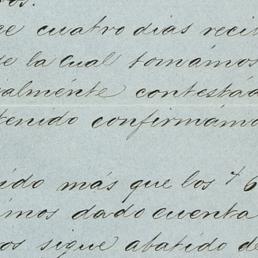 ros.
ce cuatro dias reci
de la cual tomámos
almente contestad
tenido confirmámo
ido más que los 46
imos dado cuenta
os sigue abatido de